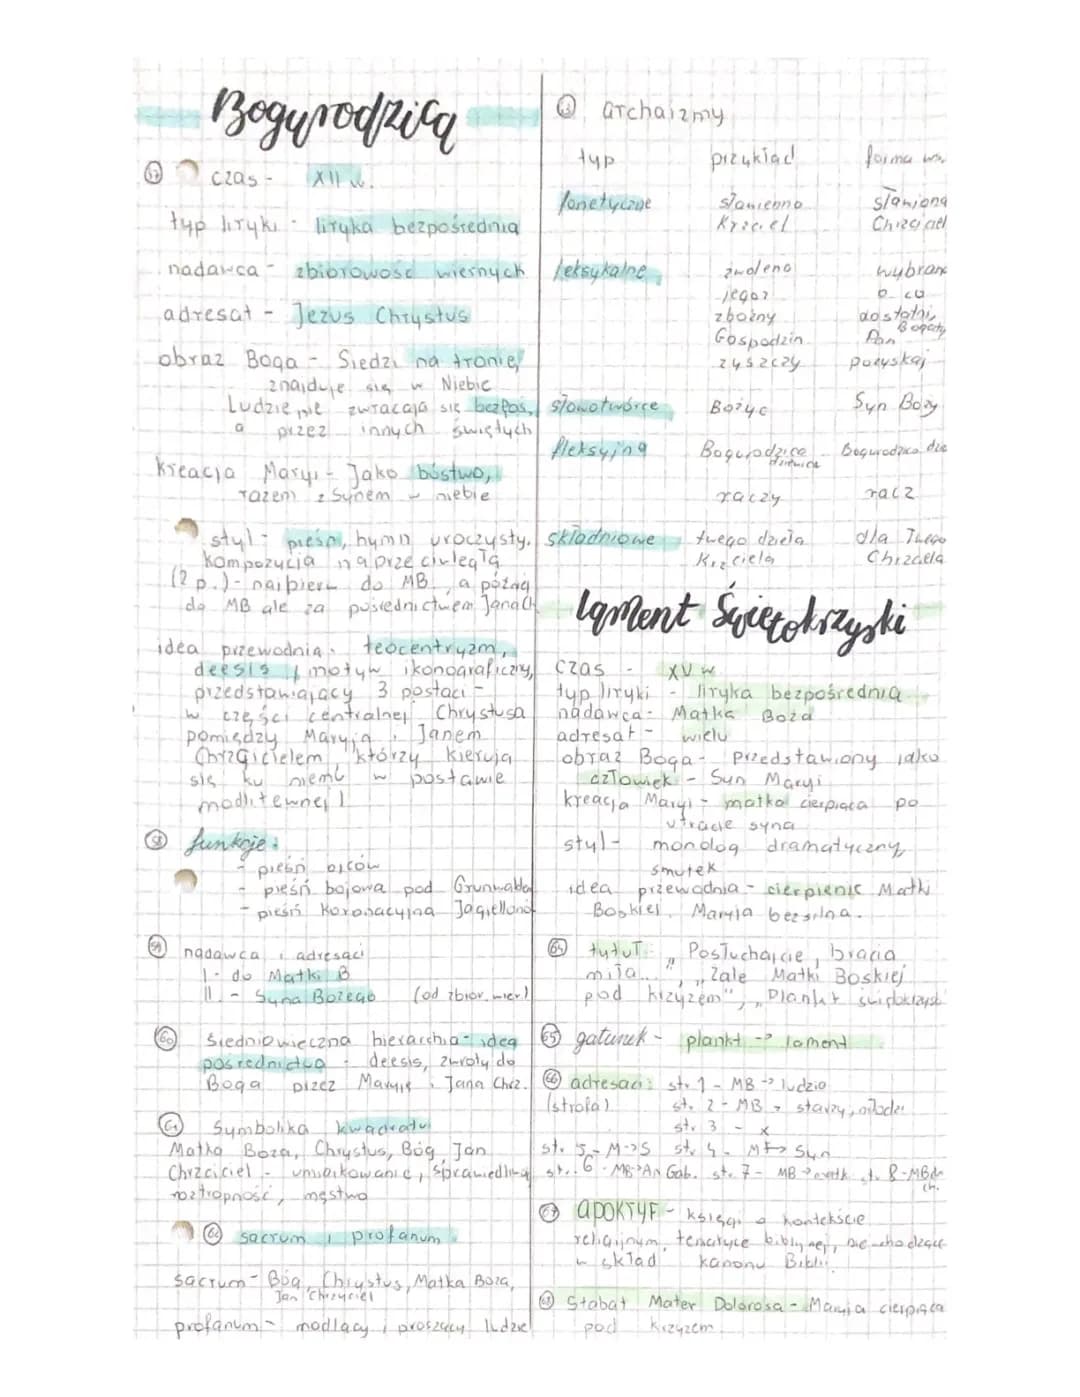 Bogurodzica
57 czas - XII w.
typ liryki - liryka bezpośrednia
nadawca - zbiorowość wiernych
adresat - Jezus Chrystus
obraz Boga - Siedzi na tronie,
znajduje się w Niebie
Ludzie nie zwracają się bezpoś,
a przez innych świętych
kreacja Maryi - Jako bóstwo,
razem z Synem w niebie
styl - pieśń, hymn uroczysty.
kompozycja naprzeciwległa
(2 p.) - najpierw do MB, a później
do MB ale za pośrednictwem Jana Ch
idea przewodnia - teocentryzm,
deesis / motyw ikonograficzny,
przedstawiający 3 postaci -
w części centralnej Chrystusa
pomiędzy Maryją i Janem
Chrzcicielem, którzy kierują
się ku niemu w postawie
modlitewnej)
58 funkcje:
- pieśń ojców
- pieśń bojowa pod Grunwalde
- pieśń koronacyjna Jagiellonó
59 nadawca i adresaci
I - do Matki B
II - Syna Bożego (od zbior. wier.)
60 średniowieczna hierarchia - idea
pośrednictwa - deesis, zwroty do
Boga przez Maryję i Jana Chrz.
61 Symbolika kwadratu
Matka Boża, Chrystus, Bóg, Jan
Chrzciciel - umiarkowanie, sprawiedliwa
roztropność, męstwo
62 sacrum i profanum
sacrum - Bóg, Chrystus, Matka Boża,
Jan Chrzyciel
profanum - modlący i proszący ludzie
63 archaizmy
typ przykład forma ws.
fonetyczne sławienno sławiona
Krzciel Chrzciciel
leksykalne zwolena wybrana
jegoż o co
zbożny dostatni, Bogaty
Gospodzin Pan
zyszczy pozyskaj
słowotwórcze Bożyc Syn Boży
fleksyjna Bogurodzica dziewica Bogurodzico dzie
raczy racz
składniowe twego dziela dla Twego
Krzciciela Chrzciela
Lament Świętokrzyski
czas - XV w
typ liryki - liryka bezpośrednia
nadawca - Matka Boża
adresat - wielu
obraz Boga - przedstawiony jako
człowiek - Syn Maryi
kreacja Maryi - matka cierpiąca po
utracie syna
styl - monolog dramatyczny,
smutek
idea przewodnia - cierpienie Matki
Boskiej, Maryja bezsilna.
64 tytuł: "Posłuchajcie, bracia
miła..", "Żale Matki Boskiej
pod krzyżem", "Plankt świętokrzysk
65 gatunek - plankt -> lament
66 adresaci: str. 1 - MB -> ludzie
(strofa) st. 2 - MB -> starzy, młodzi
str. 3 - x
st. 5 - M->S st. 4 - M -> Syn
str. 6 - MB->An Gab. st. 7 - MB -> matk st. 8 - MB
ch.
67 APOKRYF - księgi o kontekście
religijnym, tematyce biblijnej, nie wchodzące
w skład kanonu Biblii
68 Stabat Mater Dolorosa - Maryja cierpiąca
pod krzyżem